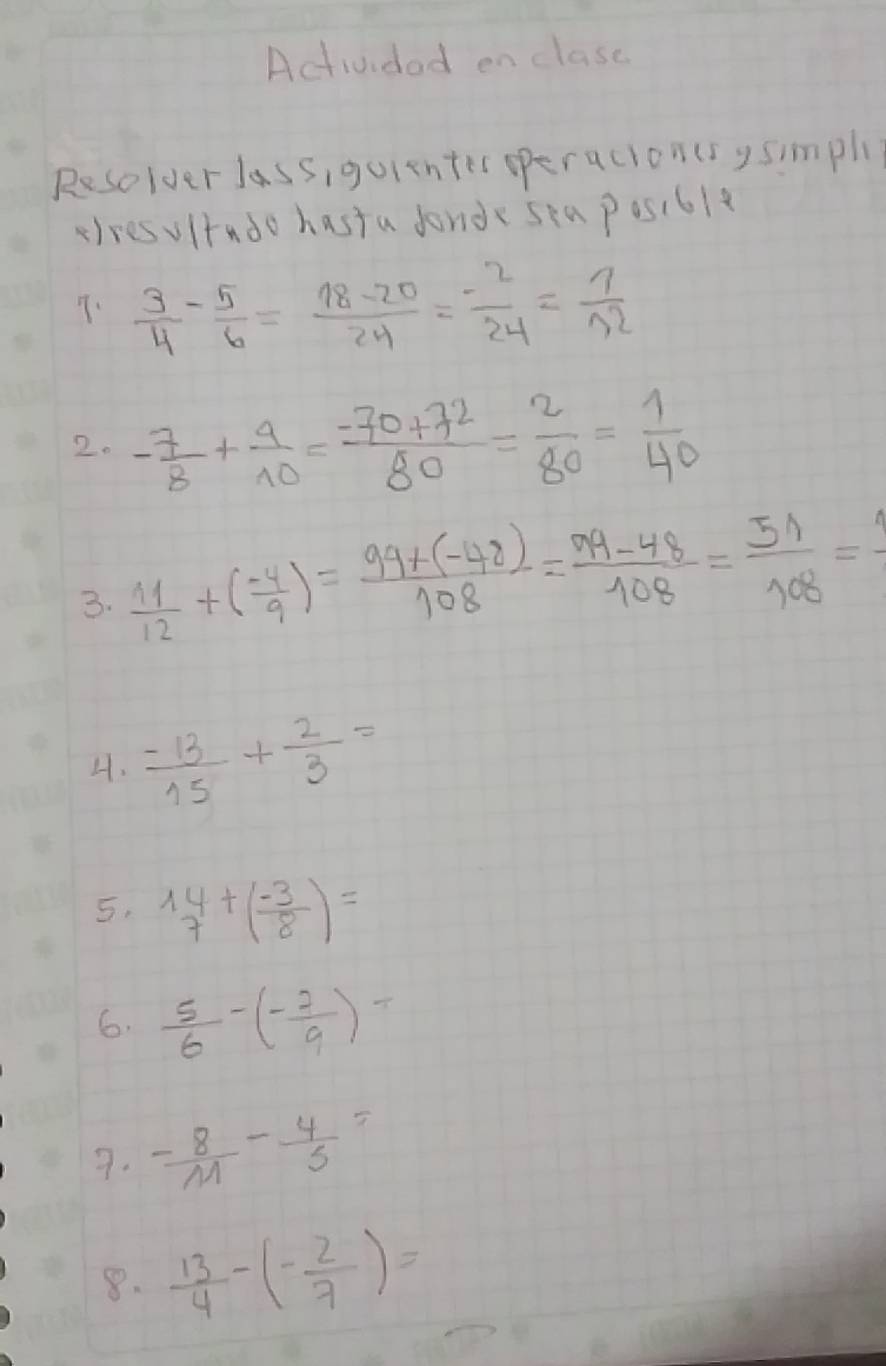 Actividad en clase
Resolver las siguientes operaciones y simpli
el resultado hasta donde sea posible
1. 3/4 - 5/6 = 18-20/24 = -2/24 = 1/12
2. -7/8 + 9/10 = -70+72/80 = 2/80 = 1/40
3. 11/12 + (-4/9) = 99+(-48)/108 = 99-48/108 = 51/108 =
4. -13/15 + 2/3 =
5. 14/7 + (-3/8) =
6. 5/6 - (-7/9) =
7. -8/11 - 4/5 =
8. 13/4 - (-2/7) =